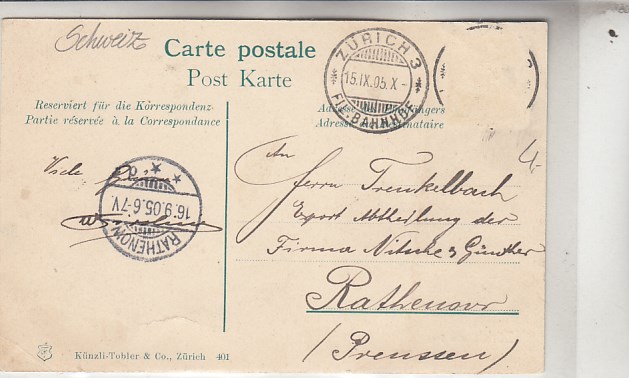 Schweiz
Carte postale
Post Karte
Reserviert für die Körrespondenz
Partie réservée à la Correspondance
ZÜRICH 3
15.IX.05.X-
FIL. BAHNHOF
4.-
An
Herrn Trenkelbach
Export Abtheilung der
Firma Nitsche & Günther
Rathenow
(Preussen)
Viele
RATHENOW
16.9.05.6-7V.
Künzli-Tobler & Co., Zürich 401